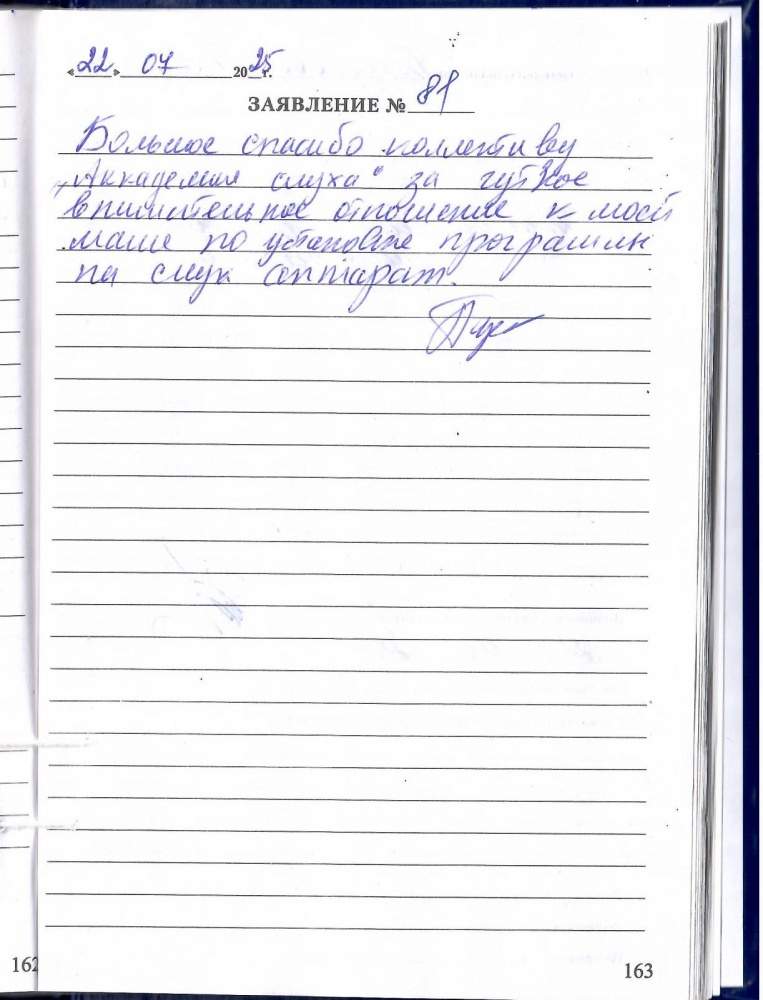 «22» 07 2025 г.
ЗАЯВЛЕНИЕ № 81
Большое спасибо коллективу
„Аккадемия слуха“ за чуткое
внимательное отношение к моей
маме по установке программы
на слух аппарат.
162
163